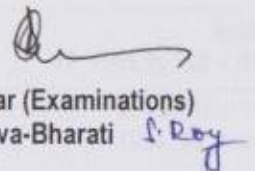 ar (Examinations)
va-Bharati S. Roy